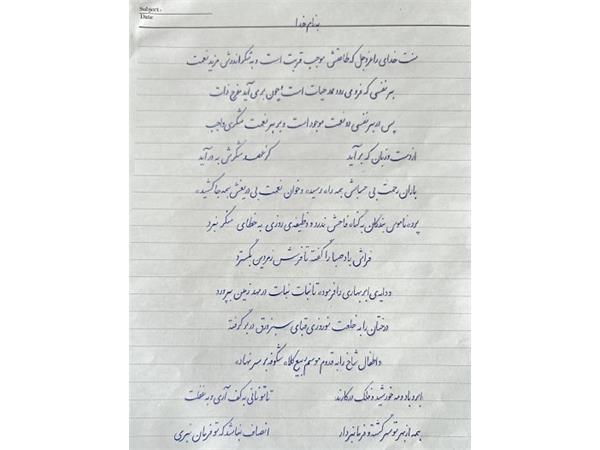 Subject.
Date
بنام خدا
منت خدای را عزوجل که طاعتش موجب قربت است و به شکر اندرش مزید نعمت
هر نفسی که فرو می رود ممد حیات است و چون بر می آید مفرح ذات
پس در هر نفسی دو نعمت موجود است و بر هر نعمت شکری واجب
از دست و زبان که برآید کز عهده شکرش به در آید
باران رحمت بی حسابش همه را رسیده و خوان نعمت بی دریغش همه جا کشیده
پرده ناموس بندگان به گناه فاحش ندرد و وظیفه ی روزی به خطای منکر نبرد
فراش باد صبا را گفته تا فرش زمردین بگسترد
و دایه ی ابر بهاری را فرموده تا نبات نبات در مهد زمین بپرورد
درختان را به خلعت نوروزی قبای سبز ورق در بر گرفته
و اطفال شاخ را به قدوم موسم ربیع کلاه شکوفه بر سر نهاده
ابر و باد و مه خورشید و فلک در کارند تا تو نانی به کف آری و به غفلت
همه از بهر تو سرگشته و فرمانبردار انصاف نباشد که تو فرمان نبری